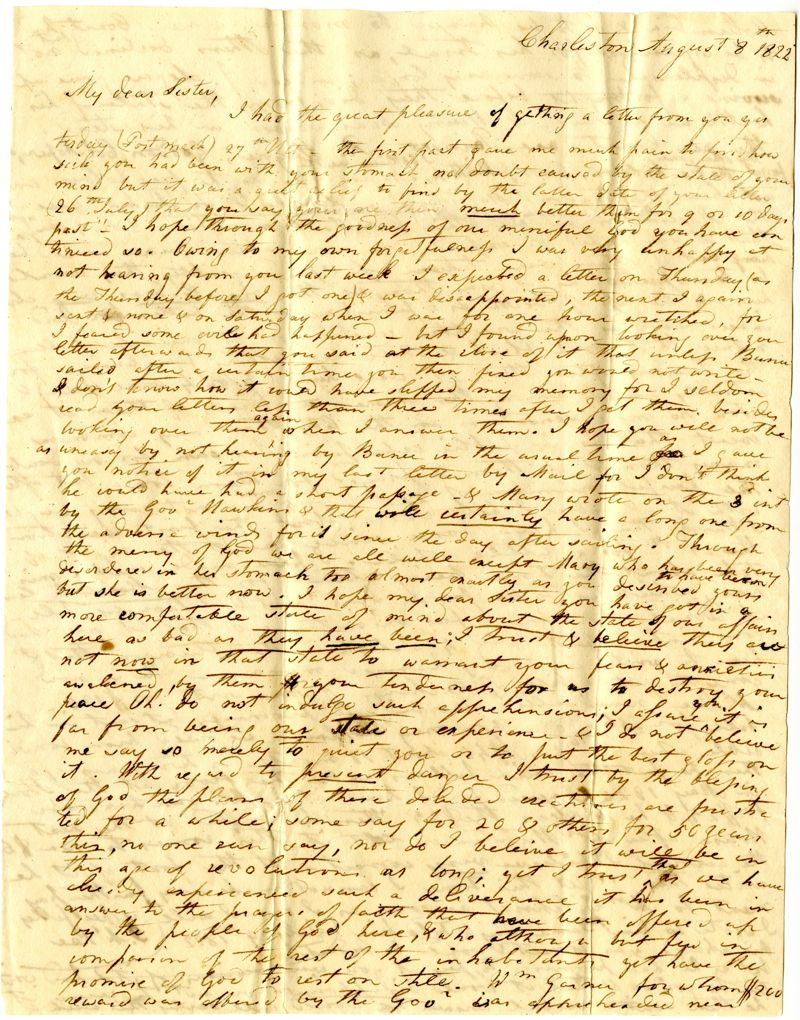 Charleston August 8th 1822
My dear Sister,
I had the great pleasure of getting a letter from you yes
terday (Post mark) 27th Ult - the first part gave me much pain to find how
sick you had been with your stomach no doubt caused by the state of your
mind but it was a great relief to find by the latter date of your letter
(26th July) that you say you are then much better than for 9 or 10 days
past - I hope through the goodness of our merciful God you have con
tinued so. Owing to my own forgetfulness I was very unhappy at
not hearing from you last week I expected a letter on Thursday (as
the Thursday before I got one) & was disappointed, the next I again
sent & none & on Saturday when I was for one hour wretched, for
I feared some evils had happened - but I found upon looking over your
letter afterwards that you said at the close of it that unless Bunce
sailed after a certain time you then fixed you would not write -
I don't know how it could have slipped my memory for I seldom
read your letters less than three times after I get them, besides
looking over them again when I answer them. I hope you will not be
as uneasy by not hearing by Bunce in the usual time as I gave
you notice of it in my last letter by Mail for I don't think
he could have had a short passage - & Mary wrote on the 3 inst
by the Govr Hawkins & that will certainly have a long one from
the adverse winds for it since the day after sailing. Through
the mercy of God we are all well except Mary who has been very
disordered in her stomach too almost exactly as you described yours to have been
but she is better now. I hope my dear Sister you have got in a
more comfortable state of mind about the state of our affairs
here as bad as they have been; I trust & believe they are
not now in that state to warrant your fears & anxieties
awakened by them for your tenderness for us to destroy your
peace Oh. do not indulge such apprehensions, I assure you it is
far from being our state or experience - & I do not believe
me say so merely to quiet you or to put the best gloss on
it. With regard to present danger I trust by the blessing
of God the plans of these deluded creatures are frustra
ted for a while; some say for 20 & others for 50 years
this, no one can say, nor do I beleive it will be in
this age of revolutions as long; yet I trust that as we have
already experienced such a deliverance it has been in
answer to the prayers of faith that have been offered up
by the people of God here, & who altho' a but few in
comparison of the rest of the inhabitants yet have the
promise of God to rest on still. Wm Garner for whom $200
reward was offered by the Govr was apprehended near